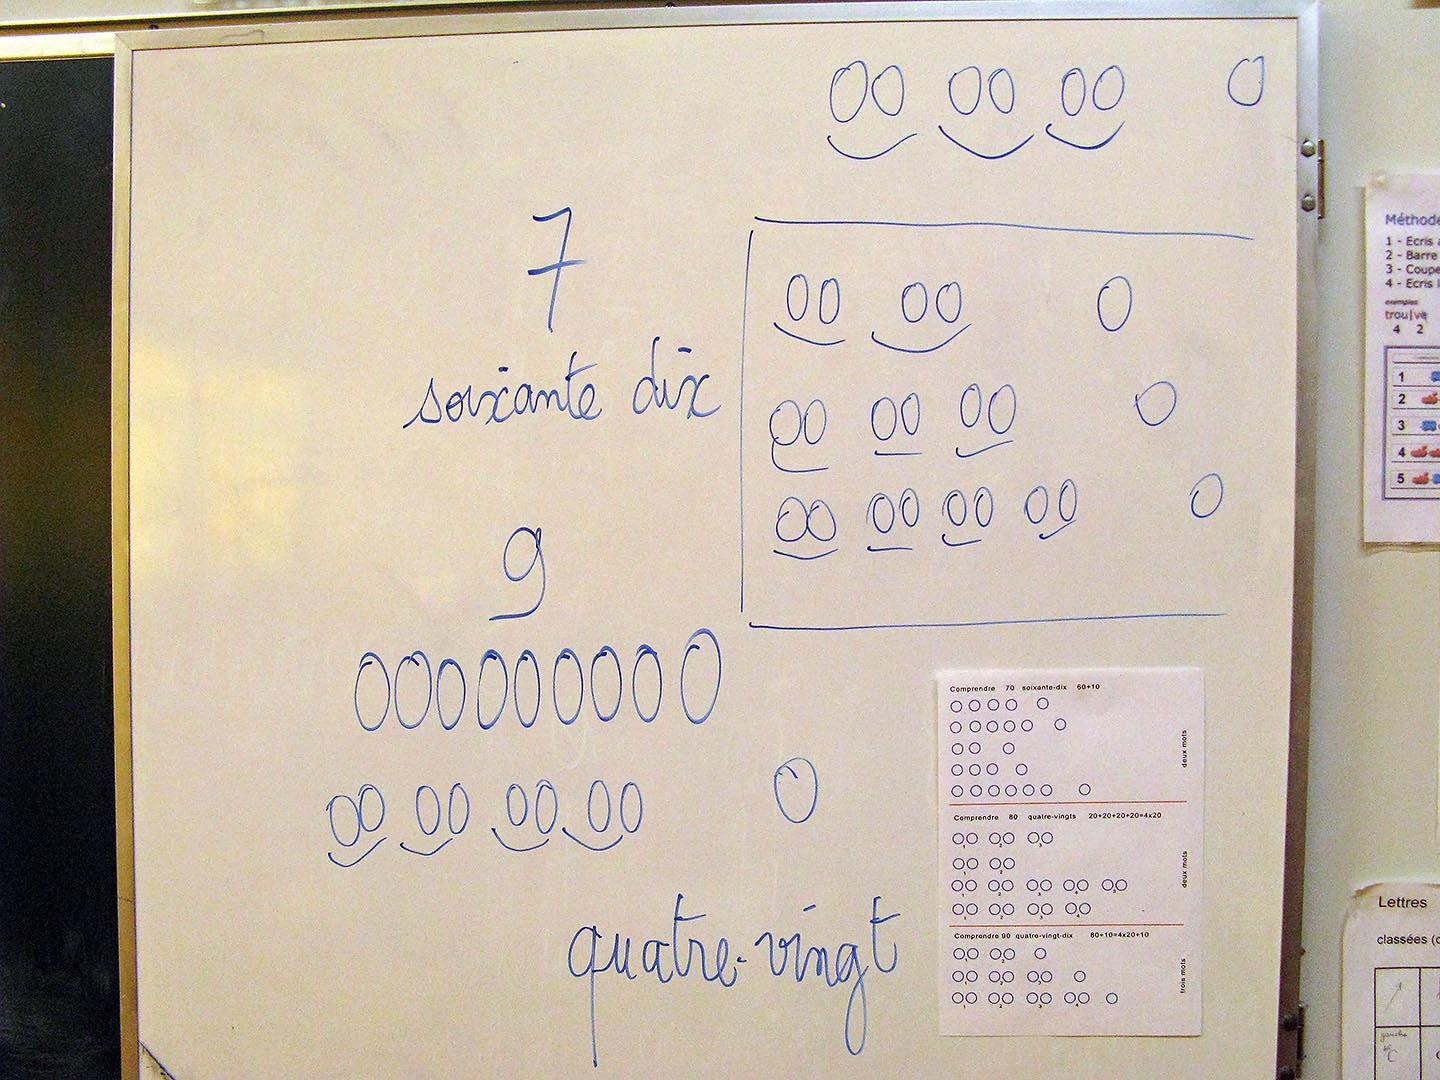 7
soixante dix
9
quatre-vingt
Comprendre 70 soixante-dix 60+10
deux mots
Comprendre 80 quatre-vingts 20+20+20+20=4x20
1 2 3
1 2
1 2 3 4 5
1 2 3 4
deux mots
Comprendre 90 quatre-vingt-dix 80+10=4x20+10
1 2
1 2 3
1 2 3 4
trois mots
Méthode
1 - Ecris
2 - Barre
3 - Coupe
4 - Ecris
exemples
trou|ve
4 2
1
2
3
4
5
Lettres
classées
gauche